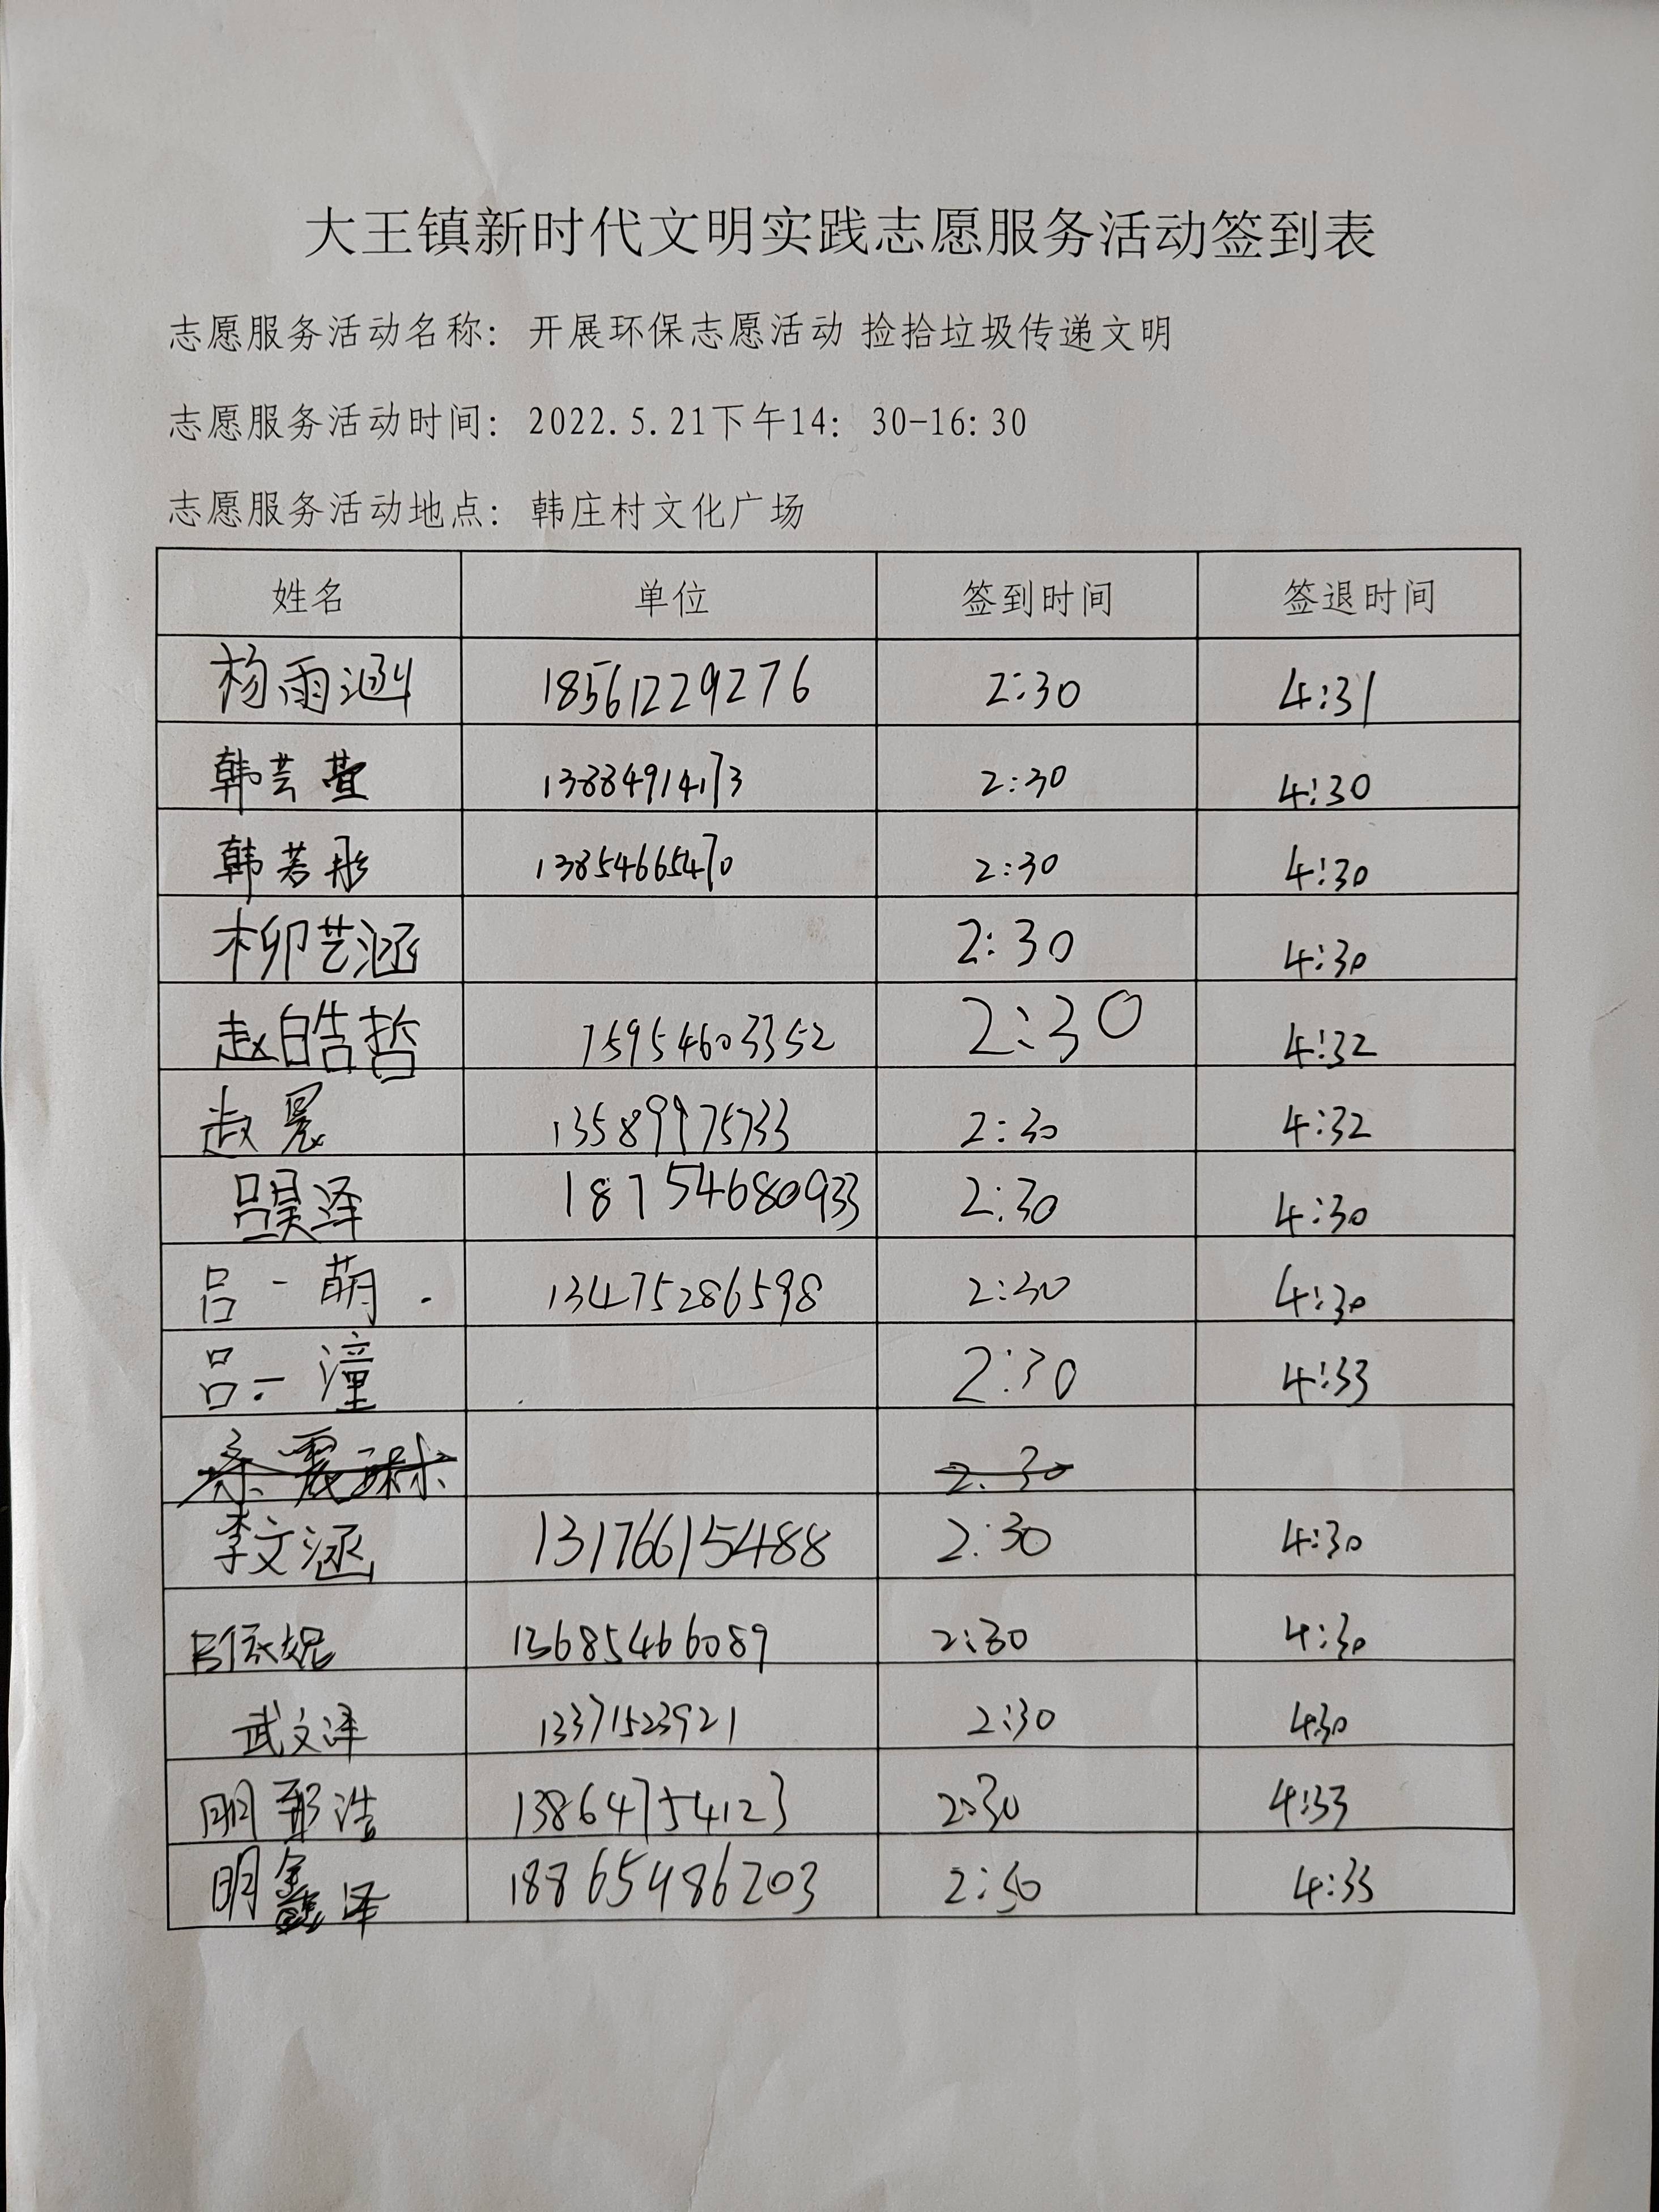 大王镇新时代文明实践志愿服务活动签到表
志愿服务活动名称：开展环保志愿活动 捡拾垃圾传递文明
志愿服务活动时间：2022.5.21下午14：30-16:30
志愿服务活动地点：韩庄村文化广场
姓名 单位 签到时间 签退时间
杨雨涵 18561229276 2:30 4:31
韩芸萱 13884914173 2:30 4:30
韩若彤 13854665470 2:30 4:30
柳艺涵 2:30 4:30
赵皓哲 15954603352 2:30 4:32
赵冕 13589975733 2:30 4:32
吕昊泽 18754680933 2:30 4:30
吕一萌. 13475286598 2:30 4:30
吕一潼 2:30 4:33
2:30
李文涵 13176615488 2:30 4:30
吕依妮 13685466089 2:30 4:30
武文泽 13371523921 2:30 4:30
明 浩 13864754123 2:30 4:33
明鑫泽 18865486203 2:30 4:33